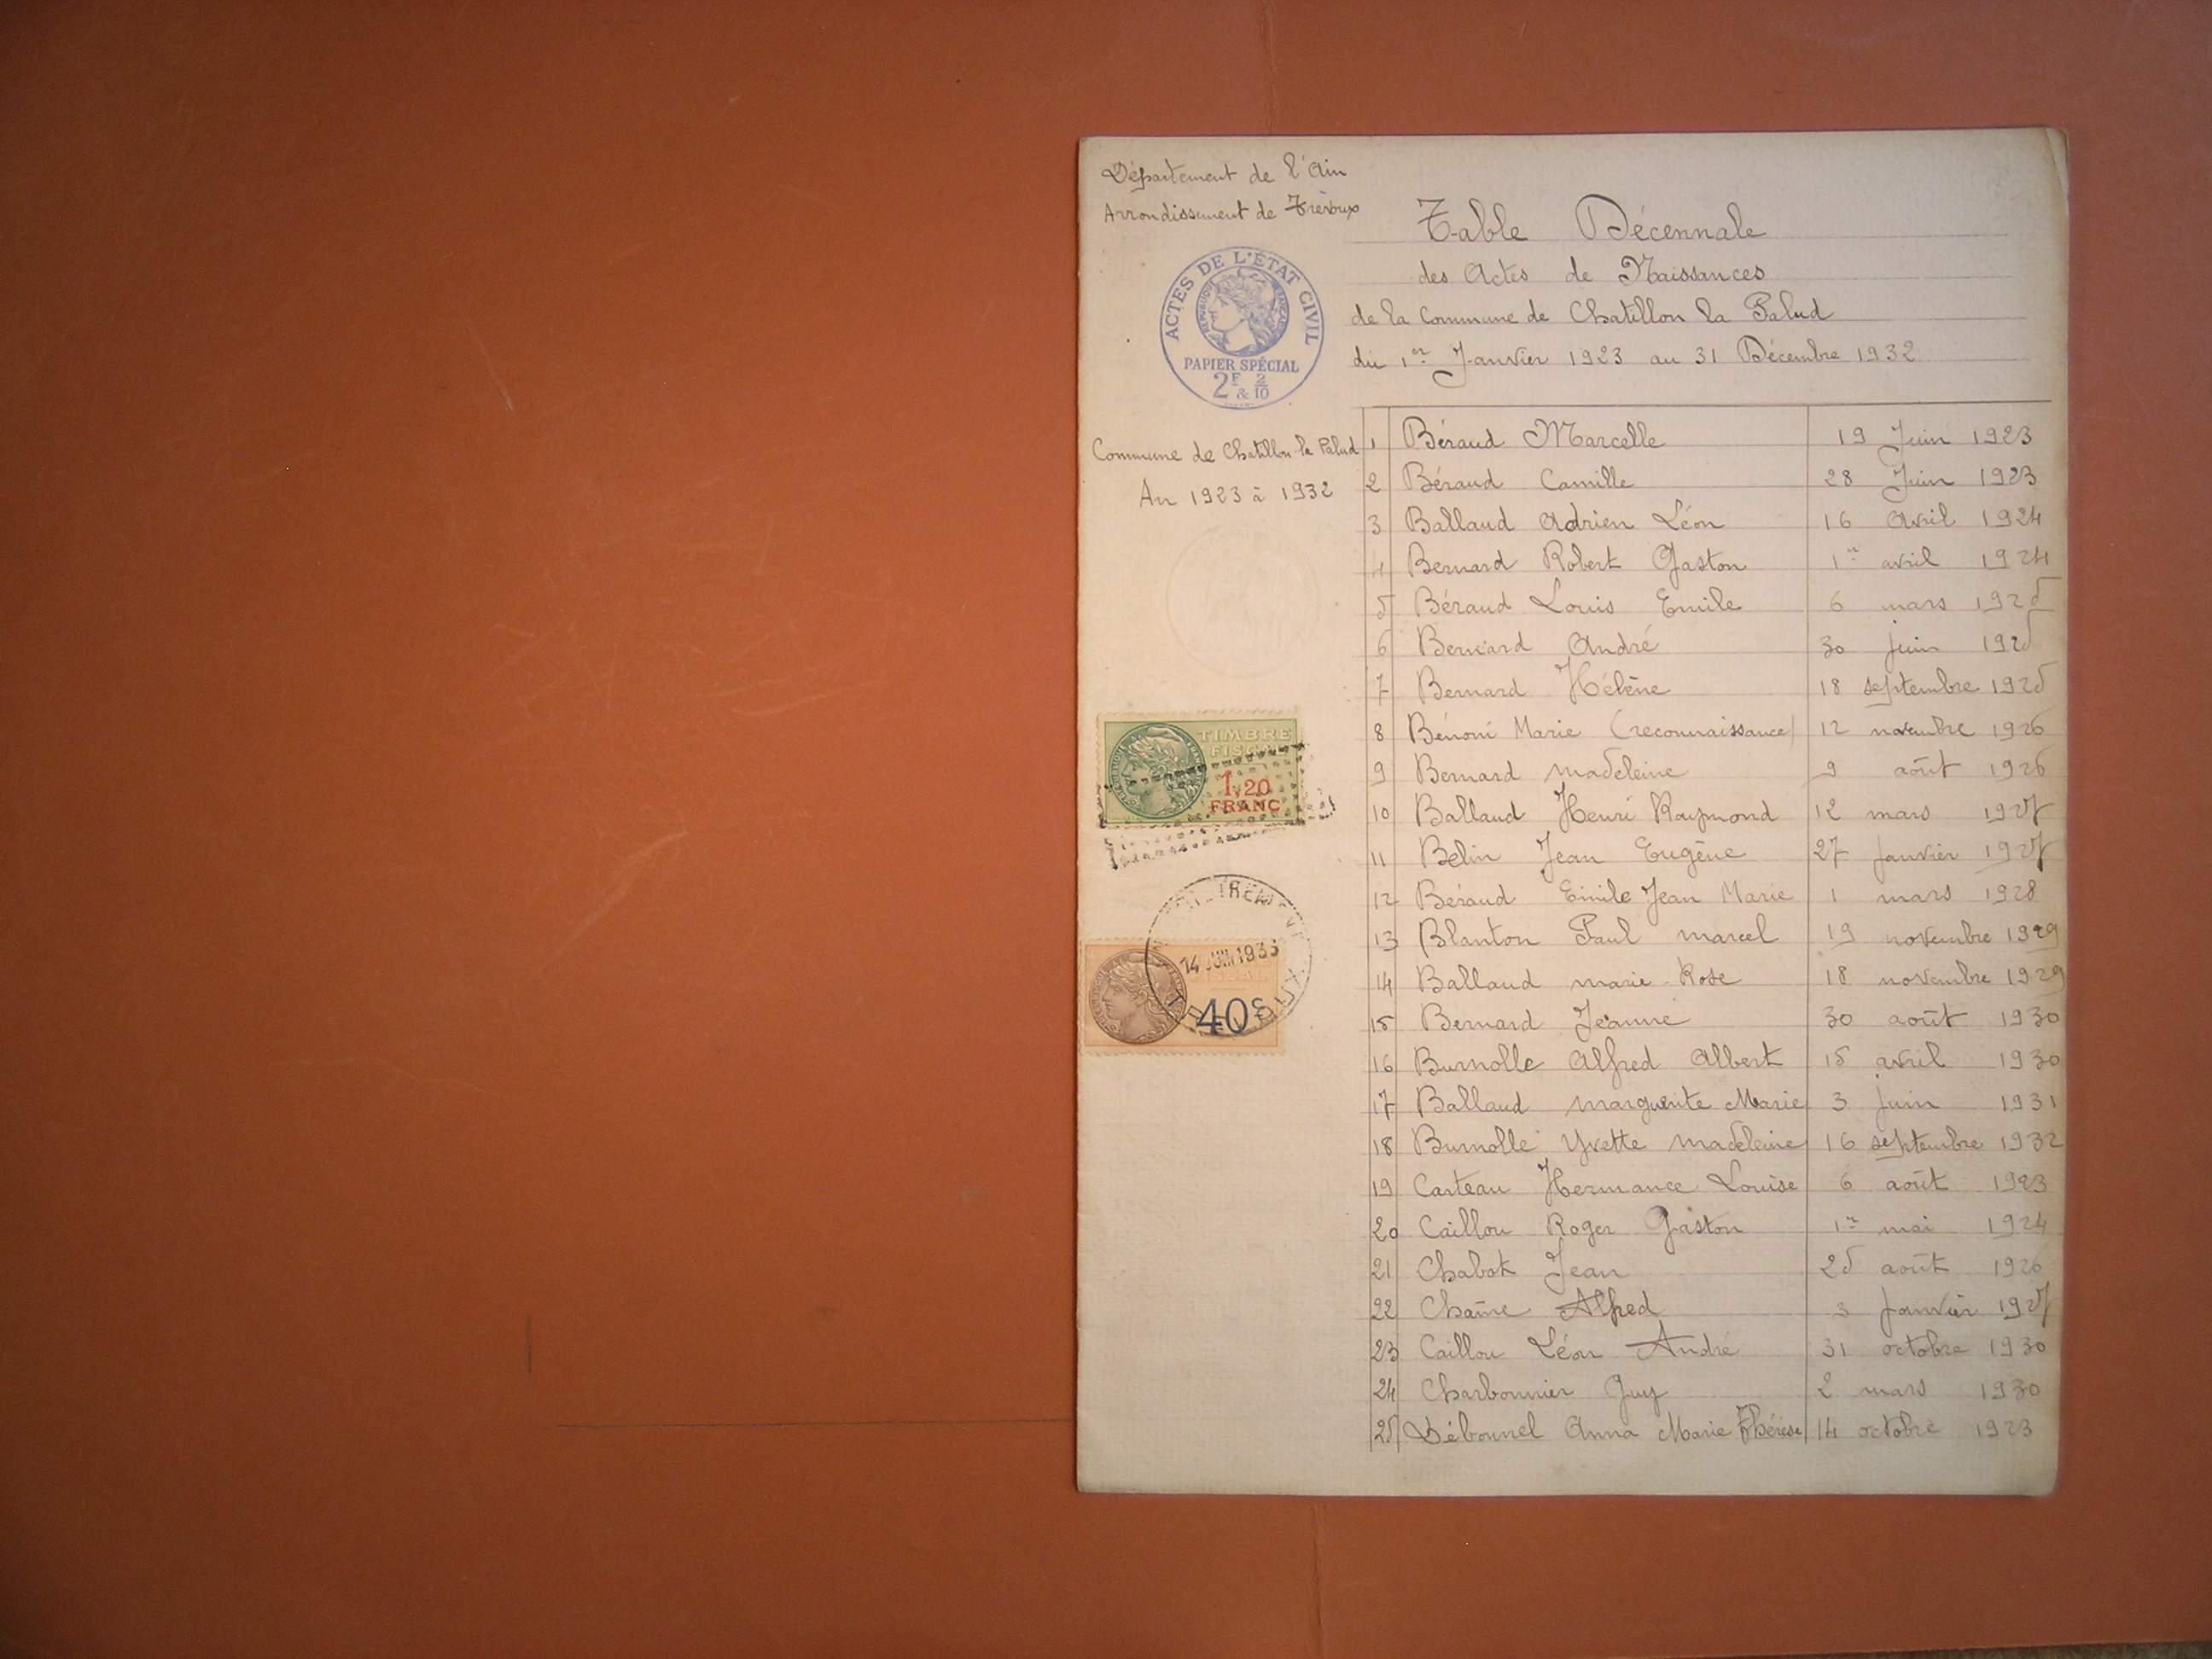 Département de l'Ain
Arrondissement de Trévoux
ACTES DE L'ÉTAT CIVIL
RÉPUBLIQUE FRANÇAISE
PAPIER SPÉCIAL
2F & 2/10
Commune de Chatillon la Palud
An 1923 à 1932
TIMBRE
FISCAL
1,20
FRANC
14 JUIN 1933
40c
Table Décennale
des Actes de Naissances
de la Commune de Chatillon la Palud
du 1er Janvier 1923 au 31 Décembre 1932
1 Béraud Marcelle 19 Juin 1923
2 Béraud Camille 28 Juin 1923
3 Ballaud Adrien Léon 16 Avril 1924
4 Bernard Robert Gaston 1er avril 1924
5 Béraud Louis Emile 6 mars 1925
6 Bernard André 30 juin 1925
7 Bernard Hélène 18 septembre 1925
8 Bénoni Marie (reconnaissance) 12 novembre 1926
9 Bernard madeleine 9 août 1926
10 Ballaud Henri Raymond 12 mars 1927
11 Belin Jean Eugène 27 janvier 1927
12 Béraud Emile Jean Marie 1 mars 1928
13 Blanton Paul marcel 19 novembre 1929
14 Ballaud marie-Rose 18 novembre 1929
15 Bernard Jeanne 30 août 1930
16 Burnolle Alfred Albert 15 avril 1930
17 Ballaud marguerite Marie 3 juin 1931
18 Burnolle Yvette madeleine 16 septembre 1932
19 Carteau Hermance Louise 6 août 1923
20 Caillou Roger Gaston 1er mai 1924
21 Chabot Jean 25 août 1926
22 Chaîne Alfred 3 janvier 1927
23 Caillou Léon André 31 octobre 1930
24 Charbonnier Guy 2 mars 1930
25 Débonnel Anna Marie Thérèse 14 octobre 1923